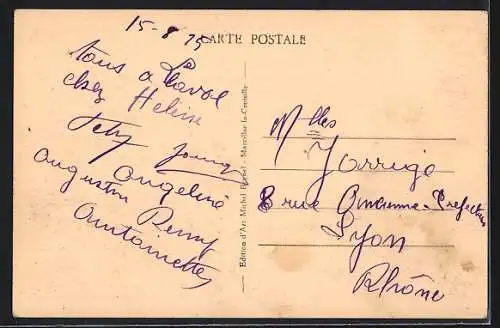 15-8/25
CARTE POSTALE
tous a Laval
chez Helene
Fety
Angeline
Augustin Remy
Antoinette
Edition d'Art Michel - Marcellaz-la-Crezelle
Mlles
Jarrige
8 rue Ancienne-Préfecture
Lyon
Rhône